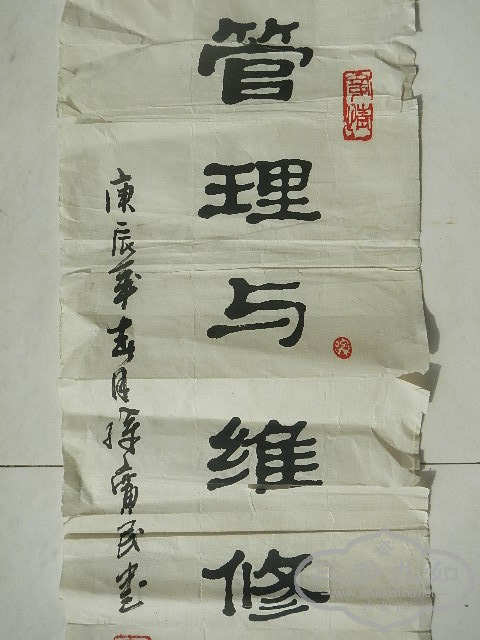 管理与维修
庚辰年春月孙广民书